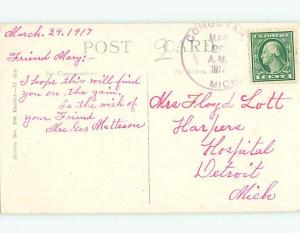 March. 29. 1917
POST CARD
Friend Mary:-
I hope this will find
you on the gain,
is the wish of
your Friend
Mrs Les Matteson
COHOCTAH
MAR
A.M.
1917
MICH.
U.S. POSTAGE
1 CENT 1
Mrs Floyd Lott
Harpers
Hospital
Detroit
Mich